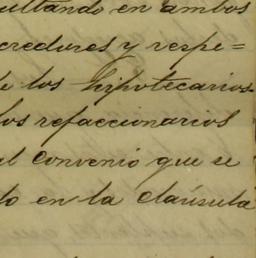 ultando en ambos
credores y respe=
e los hipotecarios
os refaccionarios
el convenio que se
do en la claúsula